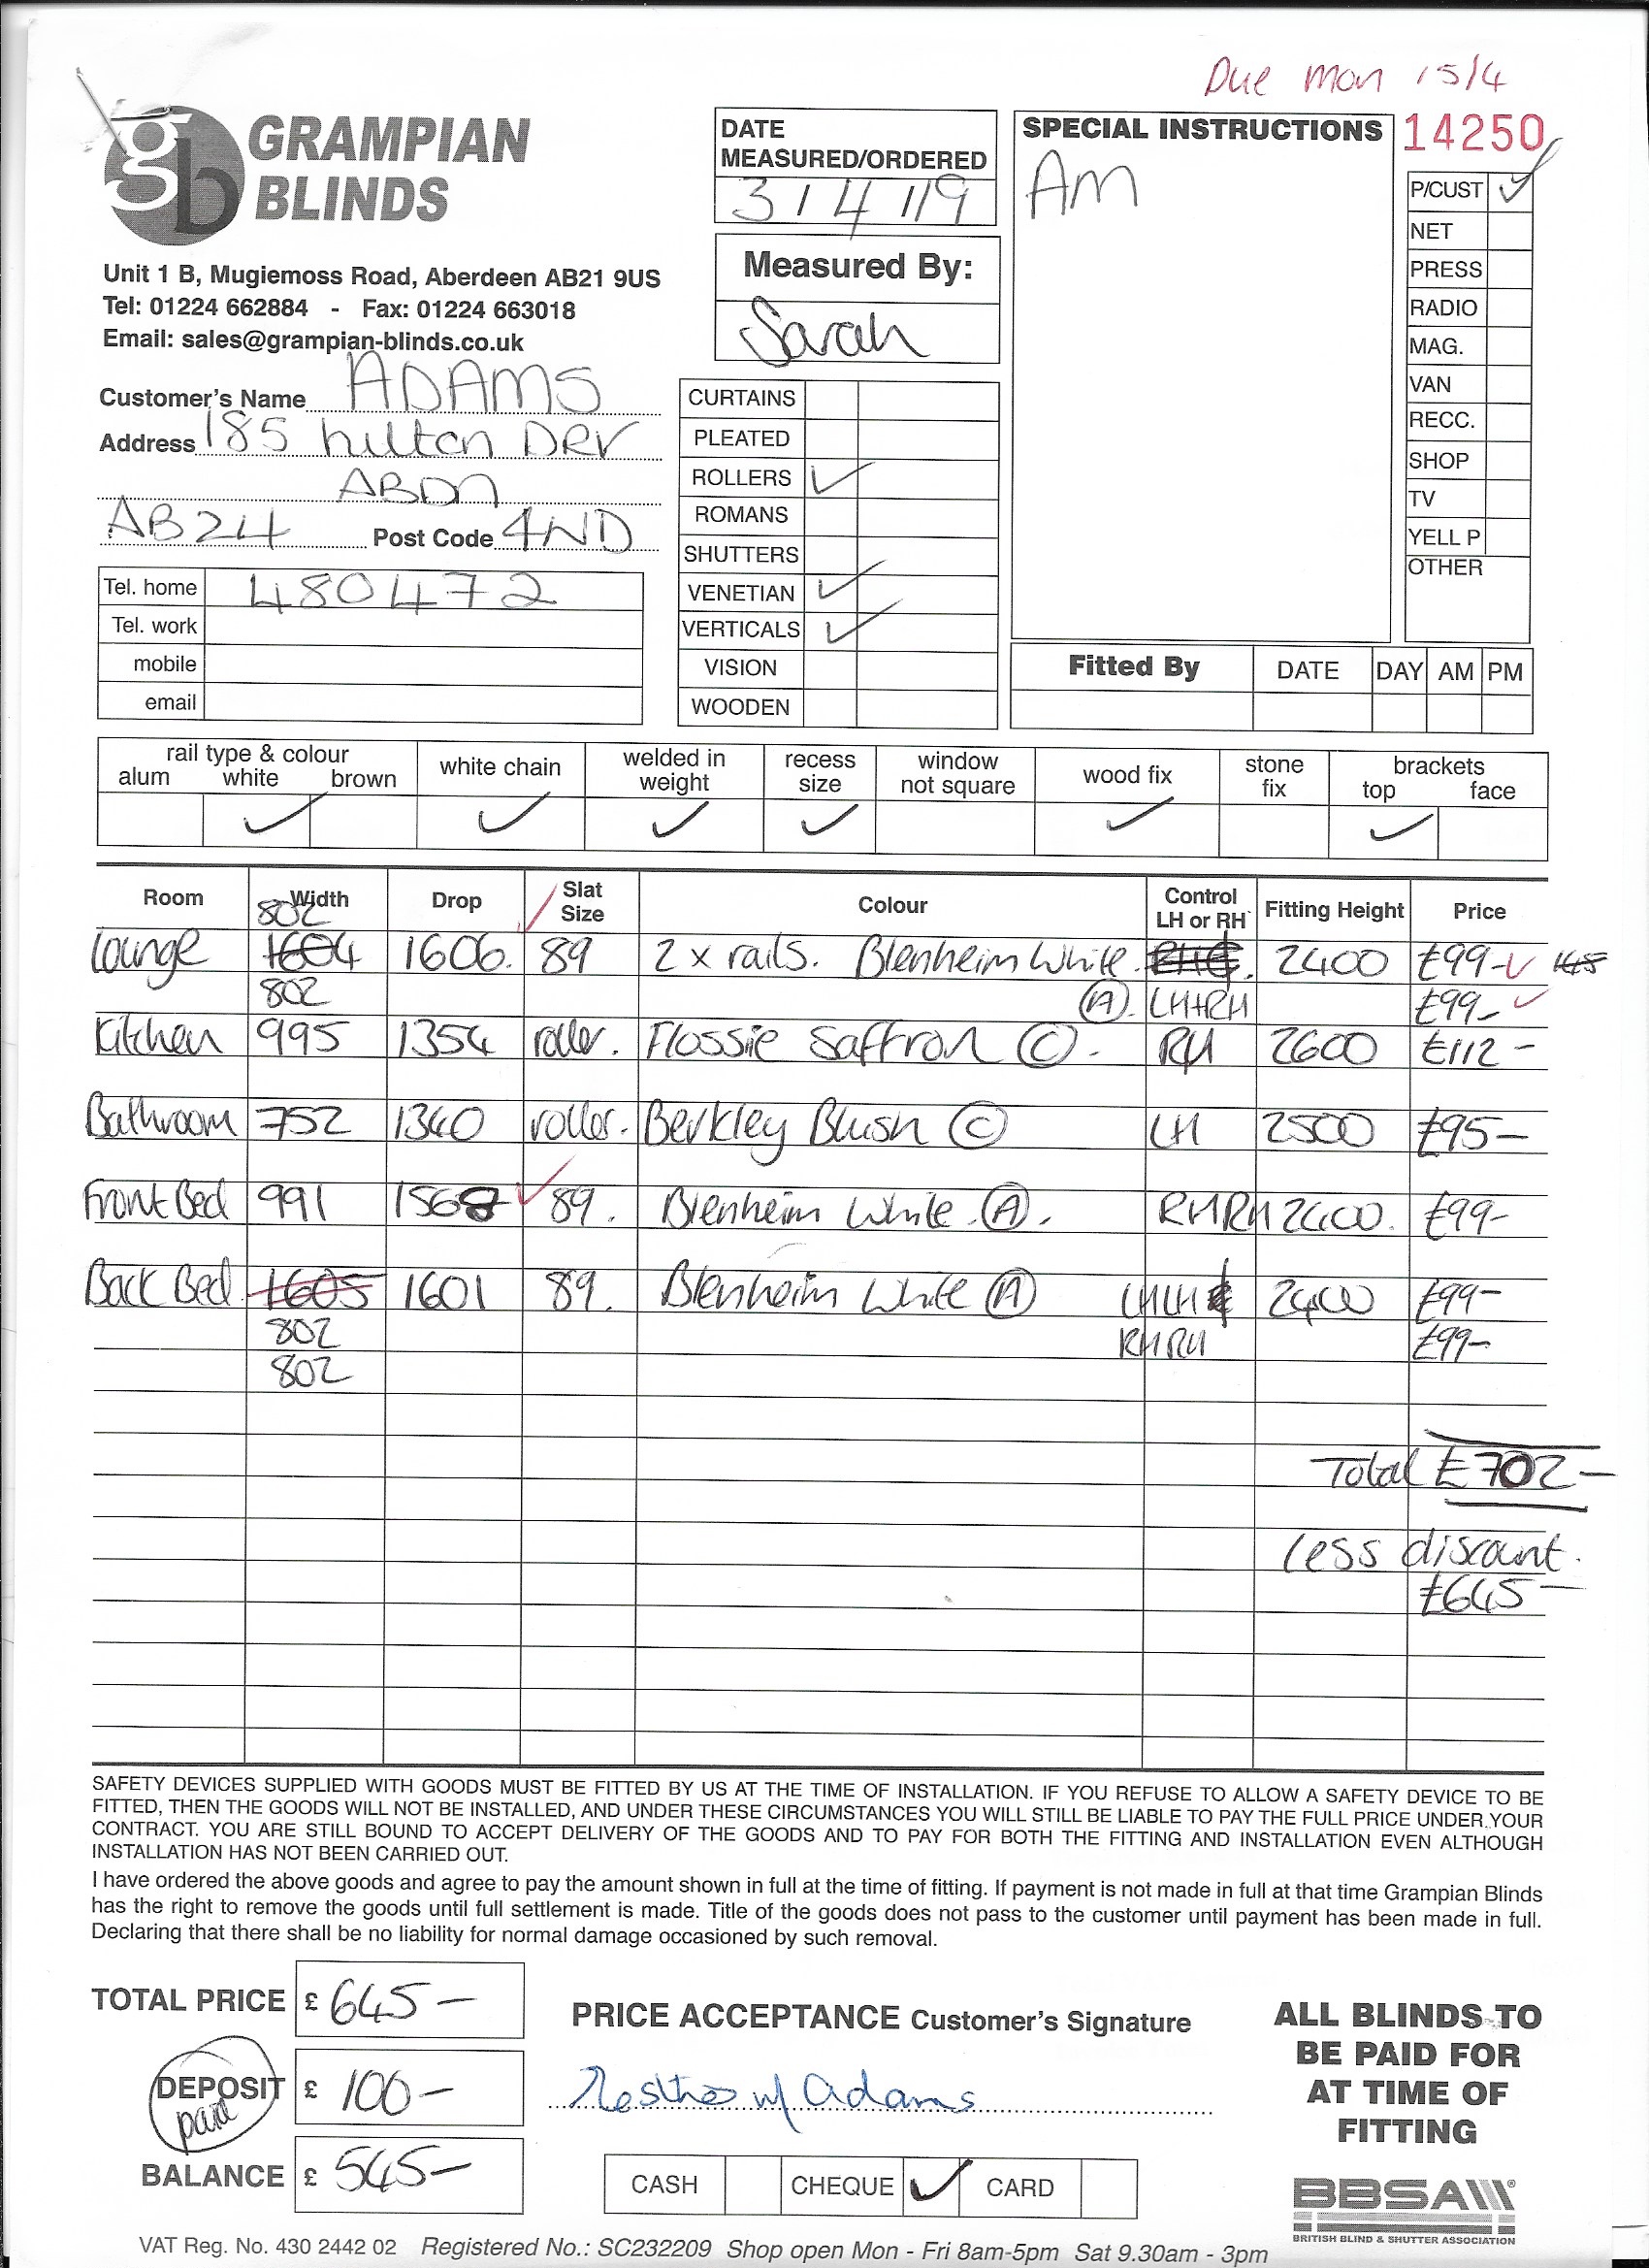 Due Mon 15/4
14250
gb GRAMPIAN
BLINDS
Unit 1 B, Mugiemoss Road, Aberdeen AB21 9US
Tel: 01224 662884 - Fax: 01224 663018
Email: sales@grampian-blinds.co.uk
Customer's Name ADAMS
Address 185 hilton DRV
ABDN
AB24 Post Code 4ND
Tel. home 480472
Tel. work
mobile
email
DATE
MEASURED/ORDERED
3/4/19
Measured By:
Sarah
CURTAINS
PLEATED
ROLLERS ✓
ROMANS
SHUTTERS
VENETIAN ✓
VERTICALS ✓
VISION
WOODEN
SPECIAL INSTRUCTIONS
AM
P/CUST ✓
NET
PRESS
RADIO
MAG.
VAN
RECC.
SHOP
TV
YELL P
OTHER
Fitted By DATE DAY AM PM
rail type & colour
alum white brown
white chain
welded in
weight
recess
size
window
not square
wood fix
stone
fix
brackets
top face
✓ ✓ ✓ ✓ ✓ ✓
Room Width Drop Slat Size Colour Control LH or RH Fitting Height Price
802
Lounge 1604 1606. 89 2 x rails. Blenheim White. 2400 £99- ✓ 145
802 (A). LH+RH £99- ✓
Kitchen 995 1354 roller. Flossie Saffron (C). RH 2600 £112-
Bathroom 752 1340 roller. Berkley Blush (C) LH 2500 £95-
Front Bed 991 1568 89. Blenheim White. (A). RHRH 2400. £99-
Back Bed. 1605 1601 89. Blenheim White (A) LHLH 2400 £99-
802 RHRH £99-
802
Total £702-
less discount.
£645-
SAFETY DEVICES SUPPLIED WITH GOODS MUST BE FITTED BY US AT THE TIME OF INSTALLATION. IF YOU REFUSE TO ALLOW A SAFETY DEVICE TO BE
FITTED, THEN THE GOODS WILL NOT BE INSTALLED, AND UNDER THESE CIRCUMSTANCES YOU WILL STILL BE LIABLE TO PAY THE FULL PRICE UNDER YOUR
CONTRACT. YOU ARE STILL BOUND TO ACCEPT DELIVERY OF THE GOODS AND TO PAY FOR BOTH THE FITTING AND INSTALLATION EVEN ALTHOUGH
INSTALLATION HAS NOT BEEN CARRIED OUT.
I have ordered the above goods and agree to pay the amount shown in full at the time of fitting. If payment is not made in full at that time Grampian Blinds
has the right to remove the goods until full settlement is made. Title of the goods does not pass to the customer until payment has been made in full.
Declaring that there shall be no liability for normal damage occasioned by such removal.
TOTAL PRICE £ 645-
DEPOSIT £ 100-
paid
BALANCE £ 545-
PRICE ACCEPTANCE Customer's Signature
Adams
CASH CHEQUE ✓ CARD
ALL BLINDS TO
BE PAID FOR
AT TIME OF
FITTING
BBSA
BRITISH BLIND & SHUTTER ASSOCIATION
VAT Reg. No. 430 2442 02 Registered No.: SC232209 Shop open Mon - Fri 8am-5pm Sat 9.30am - 3pm